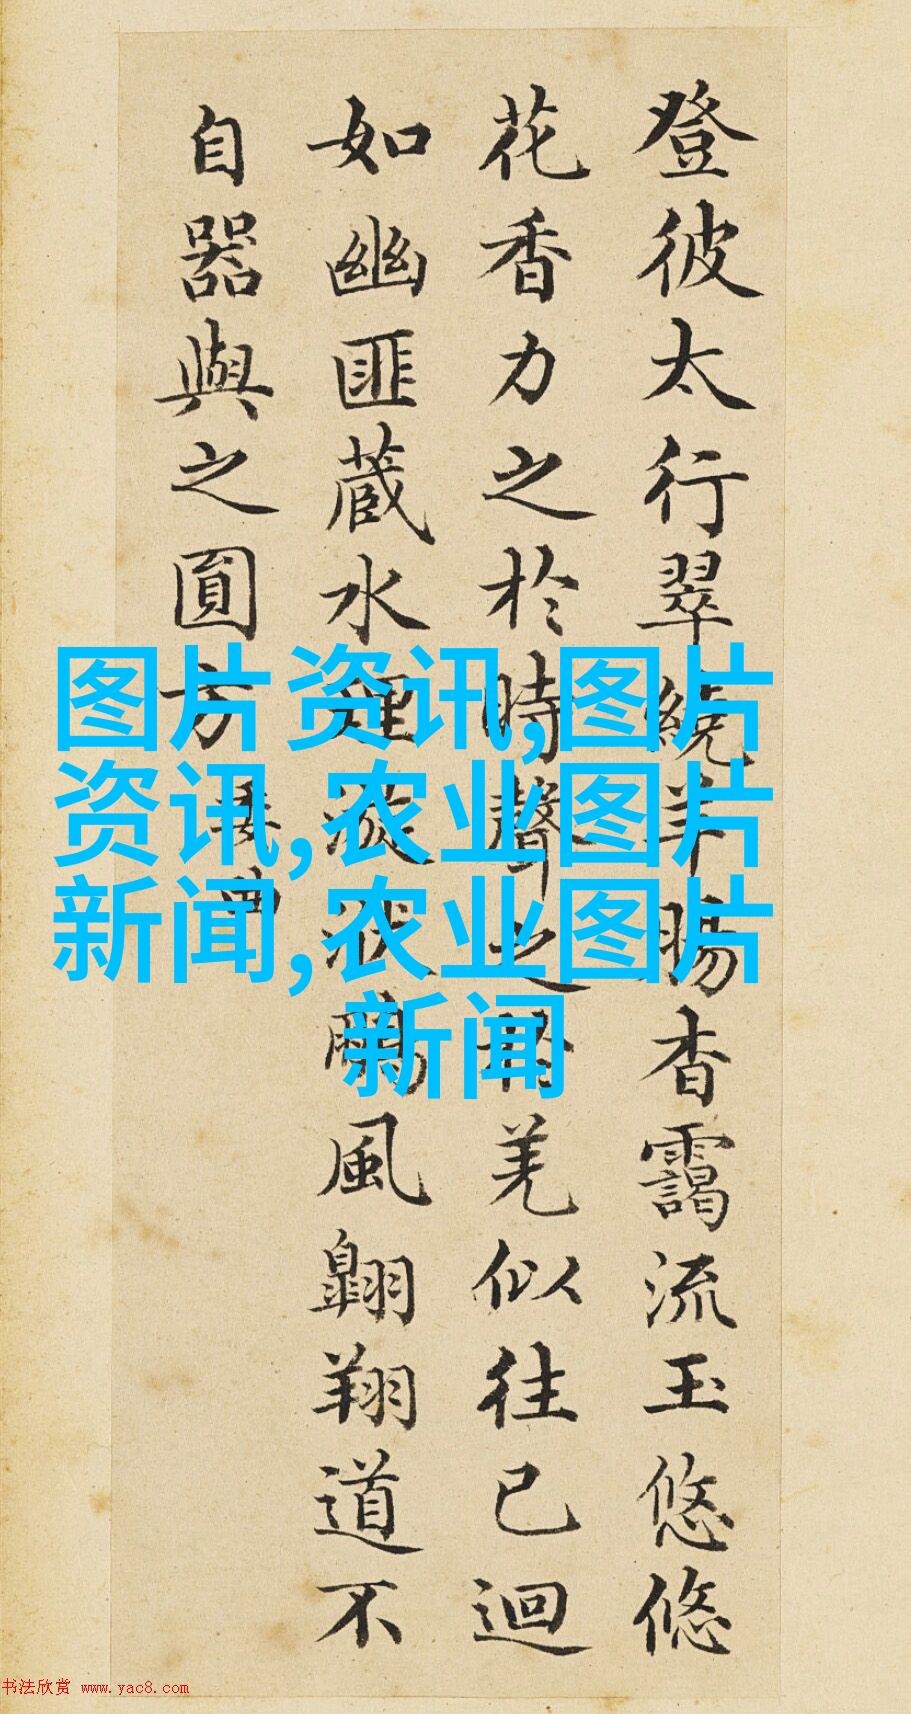 登彼太行翠繞羊腸杳靄流玉悠悠
花香力之於時聲之於羌似往已迴
如幽匪藏水理漩洑鵬風翺翔道不
自器與之圓方
委曲
图片资讯,图片
资讯,农业图片
新闻,农业图片
新闻
书法欣赏 www.yac8.com